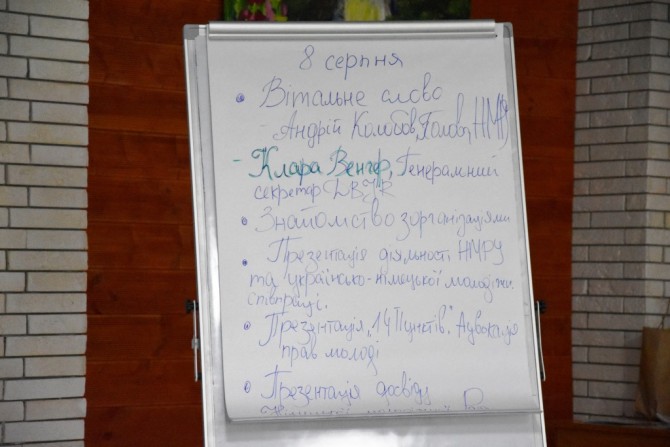 8 серпня
• Вітальне слово
- Андрій Колобов, Голова НМРУ
- Клара Венгер, Генеральний
секретар DBJR
• Знайомство з організаціями
• Презентація діяльності НМРУ
та українсько-німецької молодіжн.
співпраці.
• Презентація „14 Пунктів". Адвокація
прав молоді
• Презентація досвіду